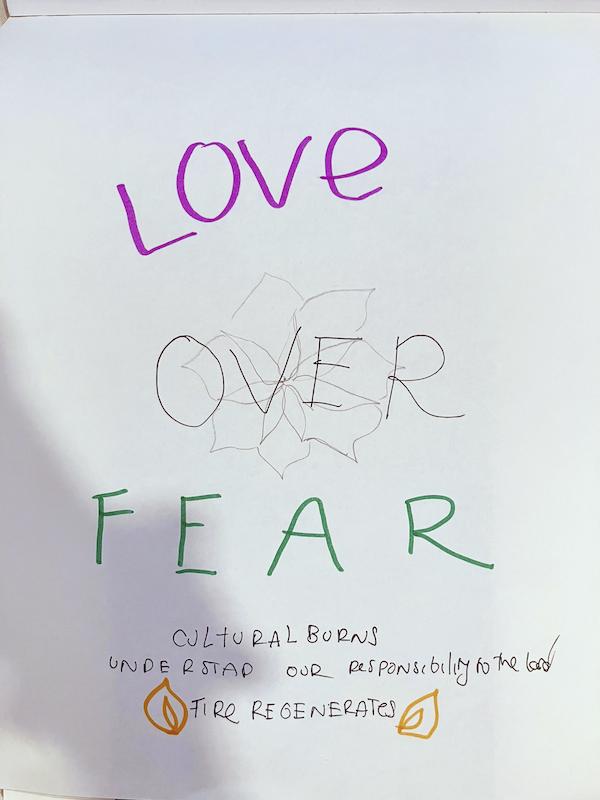 Love
OVER
FEAR
CULTURAL BURNS
UNDERSTAD OUR Responsibility to the land
FIRE REGENERATES